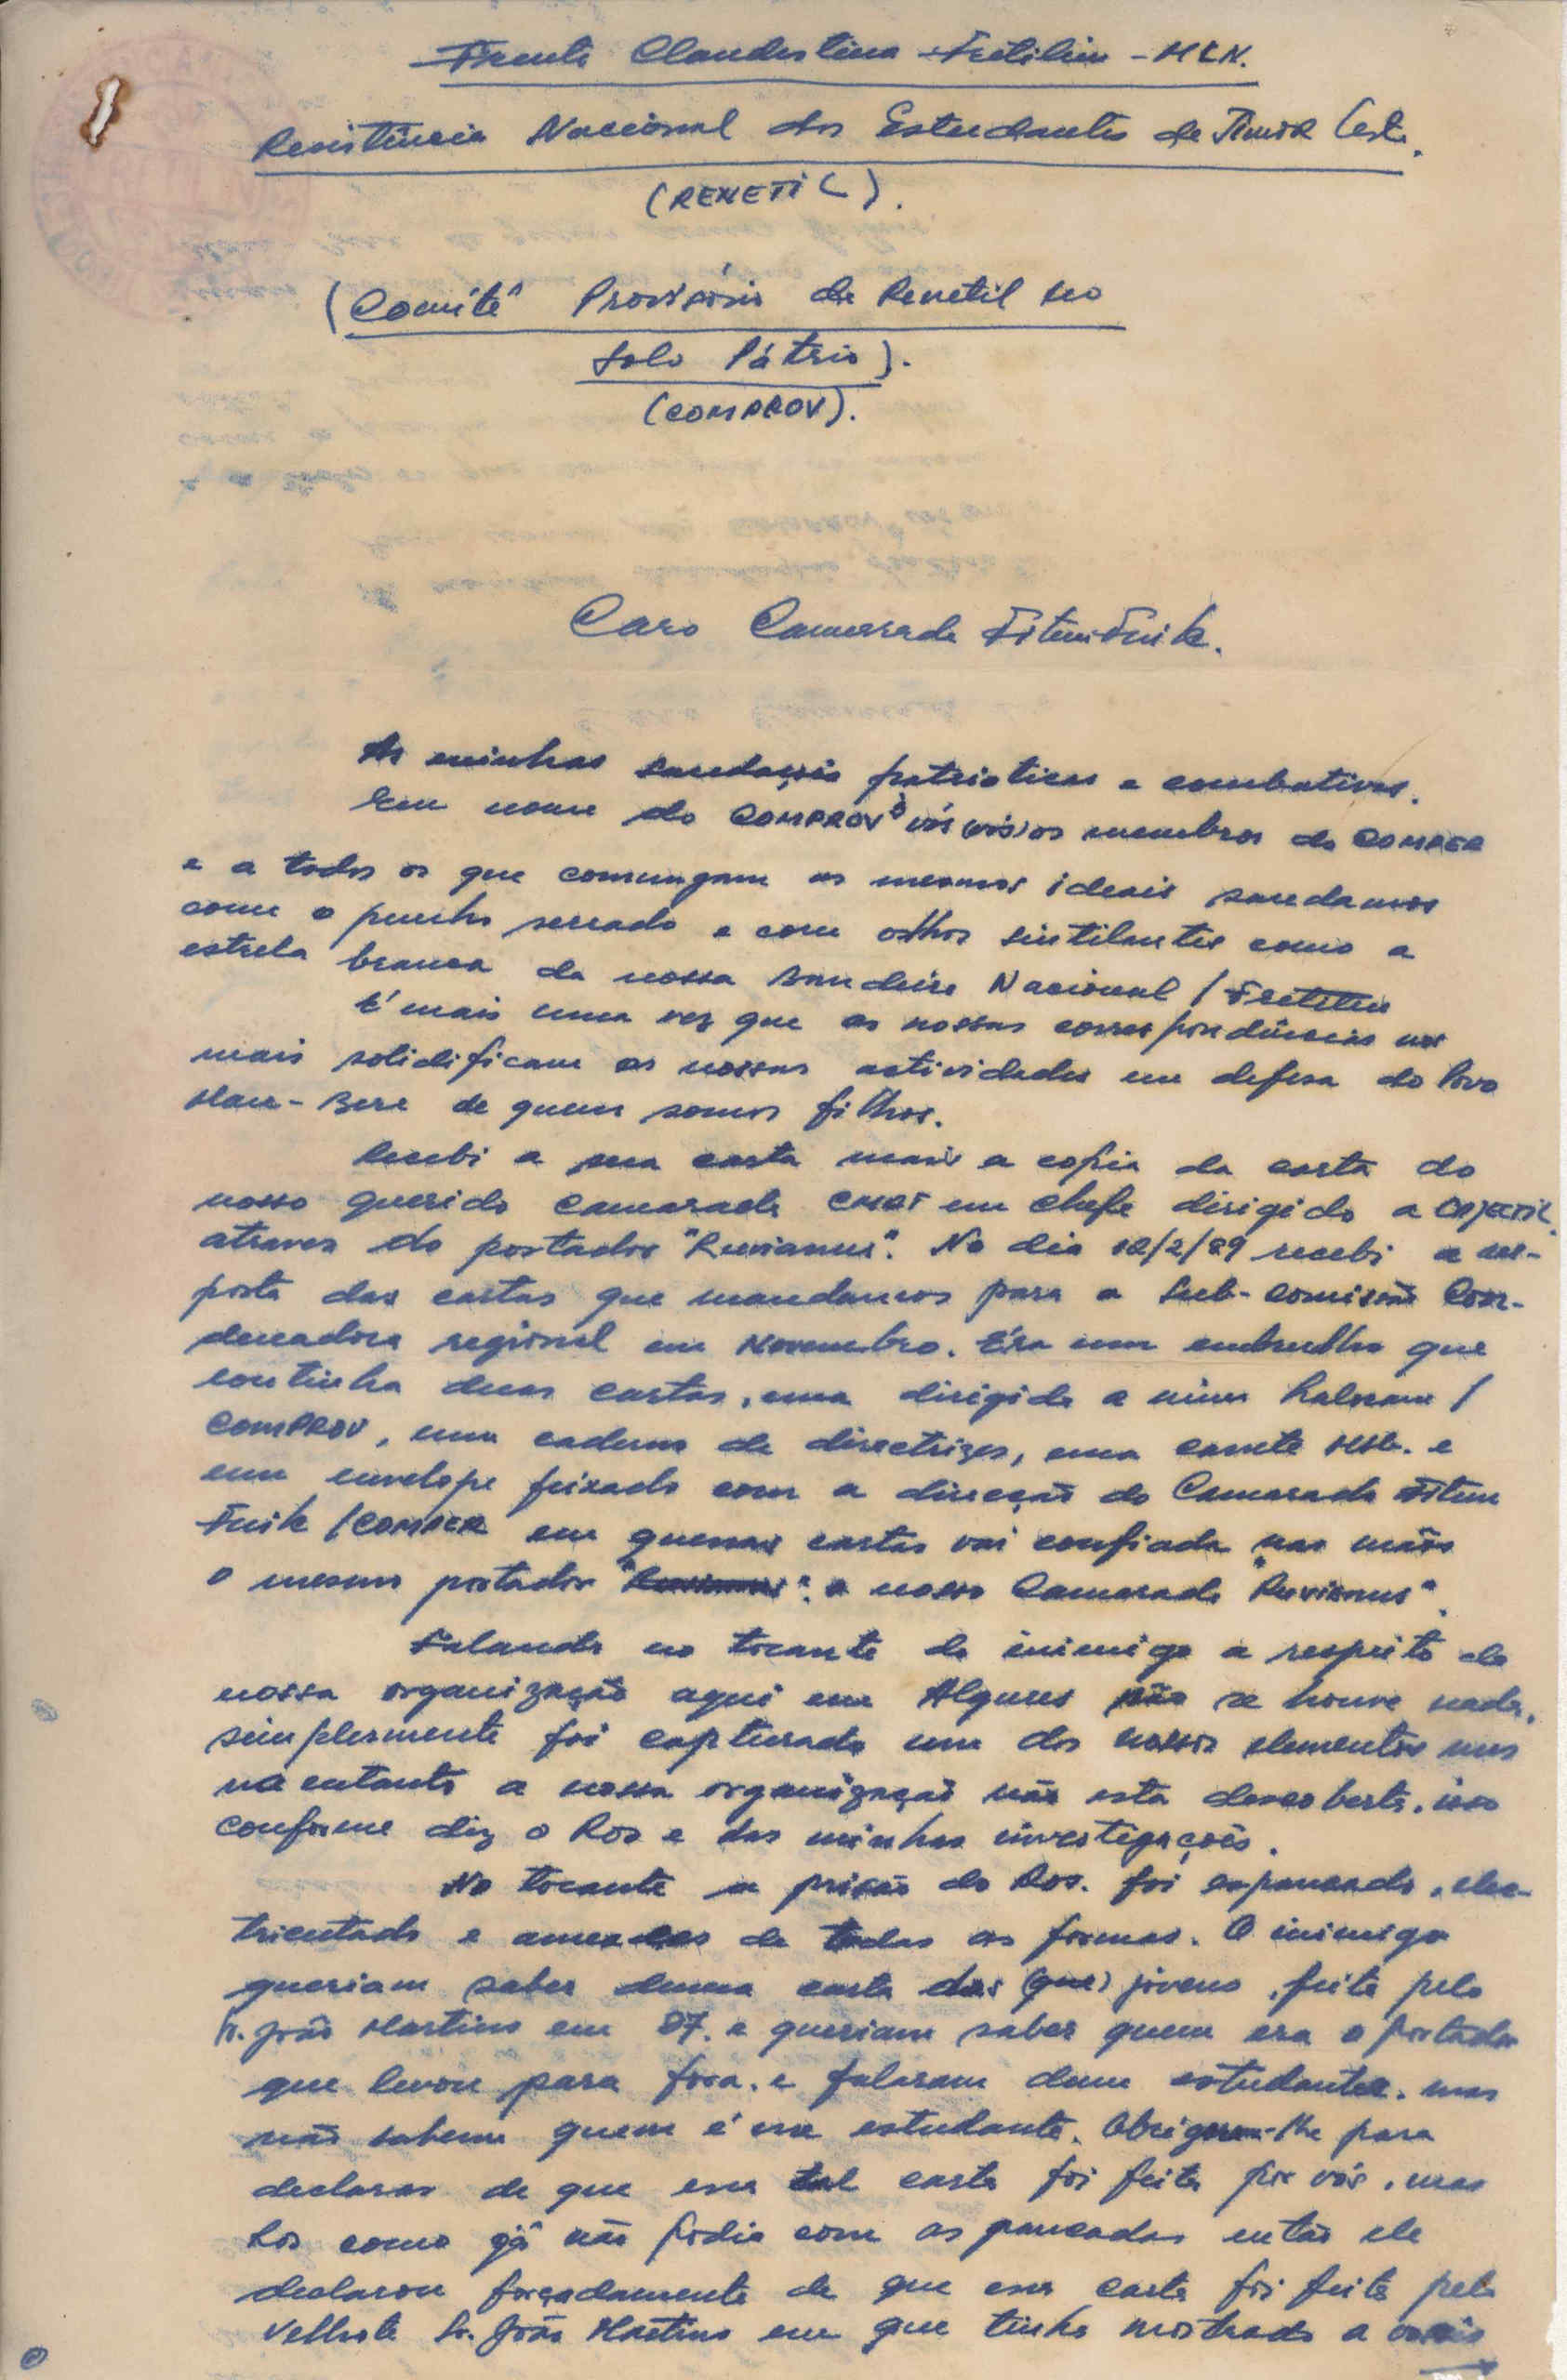 Frente Clandestina Fretilin - MLN.
Resistência Nacional dos Estudantes de Timor Leste.
(RENETIL).
(Comité Provisório da Renetil no
Solo Pátrio).
(COMPROV).
Caro Camarada Fitun Fuik.
As minhas saudações patrioticas e combativas.
Em nome do COMPROV à vós (vós) os membros do COMPER
e a todos os que comungam os mesmos ideais saudamos
com o punho serrado e com olhos sintilantes como a
estrela branca da nossa Bandeira Nacional / Fretilin
É mais uma vez que as nossas correspondências nos
mais solidificam as nossas actividades em defesa do Povo
Mau-Bere de quem somos filhos.
Recebi a sua carta mais a copia da carta do
nosso querido Camarada CMDT em Chefe dirigido a OPJECTIL
atraves do portador "Ruvianus". No dia 12/2/89 recebi a res-
posta das cartas que mandamos para a Sub-Comissão Coor-
denadora regional em Novembro. Éra um embrulho que
continha duas cartas, uma dirigida a mim /
COMPROV, um caderno de directrizes, uma e
um envelope feixado com a direcção do Camarada Fitun
Fuik /COMPER em quessas cartas vai confiada nas mãos
o mesmo portador o nosso Camarada "Ruvianus".
Falando no tocante do inimigo a respeito da
nossa organização aqui em Algures não se houve nada,
simplesmente foi capturado um dos nossos elementos mas
no entanto a nossa organização não esta descoberta, isso
conforme diz o Ros e das minhas investigações.
No tocante a prisão do Ros. foi espancado, elec-
tricutado e de todas as formas. O inimigo
queriam saber duma carta dos (que) jovens, feita pelo
Sr. João Martins em 87. e queriam saber quem era o portador
que levou para fora. e falaram dum estudante. mas
não sabem quem é esse estudante. Obrigaram-lhe para
declarar de que essa tal carta foi feita por vós, mas
Ros como já não podia com as pancadas então ele
declarou forçadamente de que essa carta foi feita pelo
Velhote Sr. João Martins em que tinha mostrado a vossis